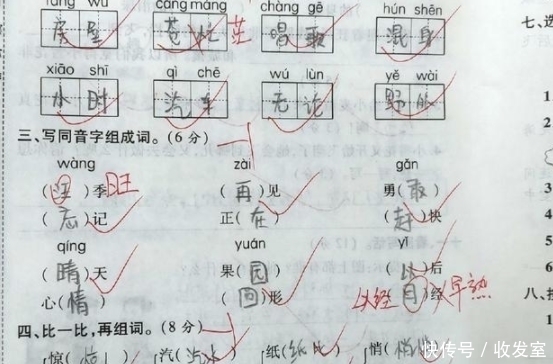 fáng wū cāng máng chàng gē hún shēn
苍忙 茫 唱歌 混身
xiāo shī qì chē wú lùn yě wài
水时 汽车 无论 野外
三、写同音字组成词。(6分)
wàng zài gǎn
( )季 旺 (再)见 勇(敢)
(忘)记 正(在) (赶)快
qíng yuán yǐ
(晴)天 果(园) ( )后
心(情) (圆)形 已经 ( )经 早熟
四、比一比,再组词。(8分)
惊( ) 汽(汽水) 纸(纸 ) 悄(悄 )
七、
1
2
3
4
5
6
八、
1
快传号/收发室